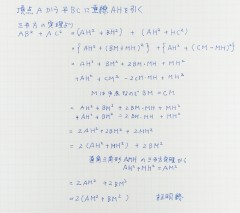 頂点Aから辺BCに垂線AHを引く
三平方の定理より
AB² + AC² = (AH² + BH²) + (AH² + HC²)
= {AH² + (BM+MH)²} + {AH² + (CM-MH)²}
= AH² + BM² + 2BM・MH + MH²
+AH² + CM² - 2CM・MH + MH²
Mは中点なので BM = CM
= AH² + BM² + 2BM・MH + MH²
+ AH² + BM² - 2BM・MH + MH²
= 2AH² + 2BM² + 2MH²
= 2(AH² + MH²) + 2BM²
直角三角形AMHの三平方の定理から
AH² + MH² = AM²
= 2AM² + 2BM²
= 2(AM² + BM²) 証明終